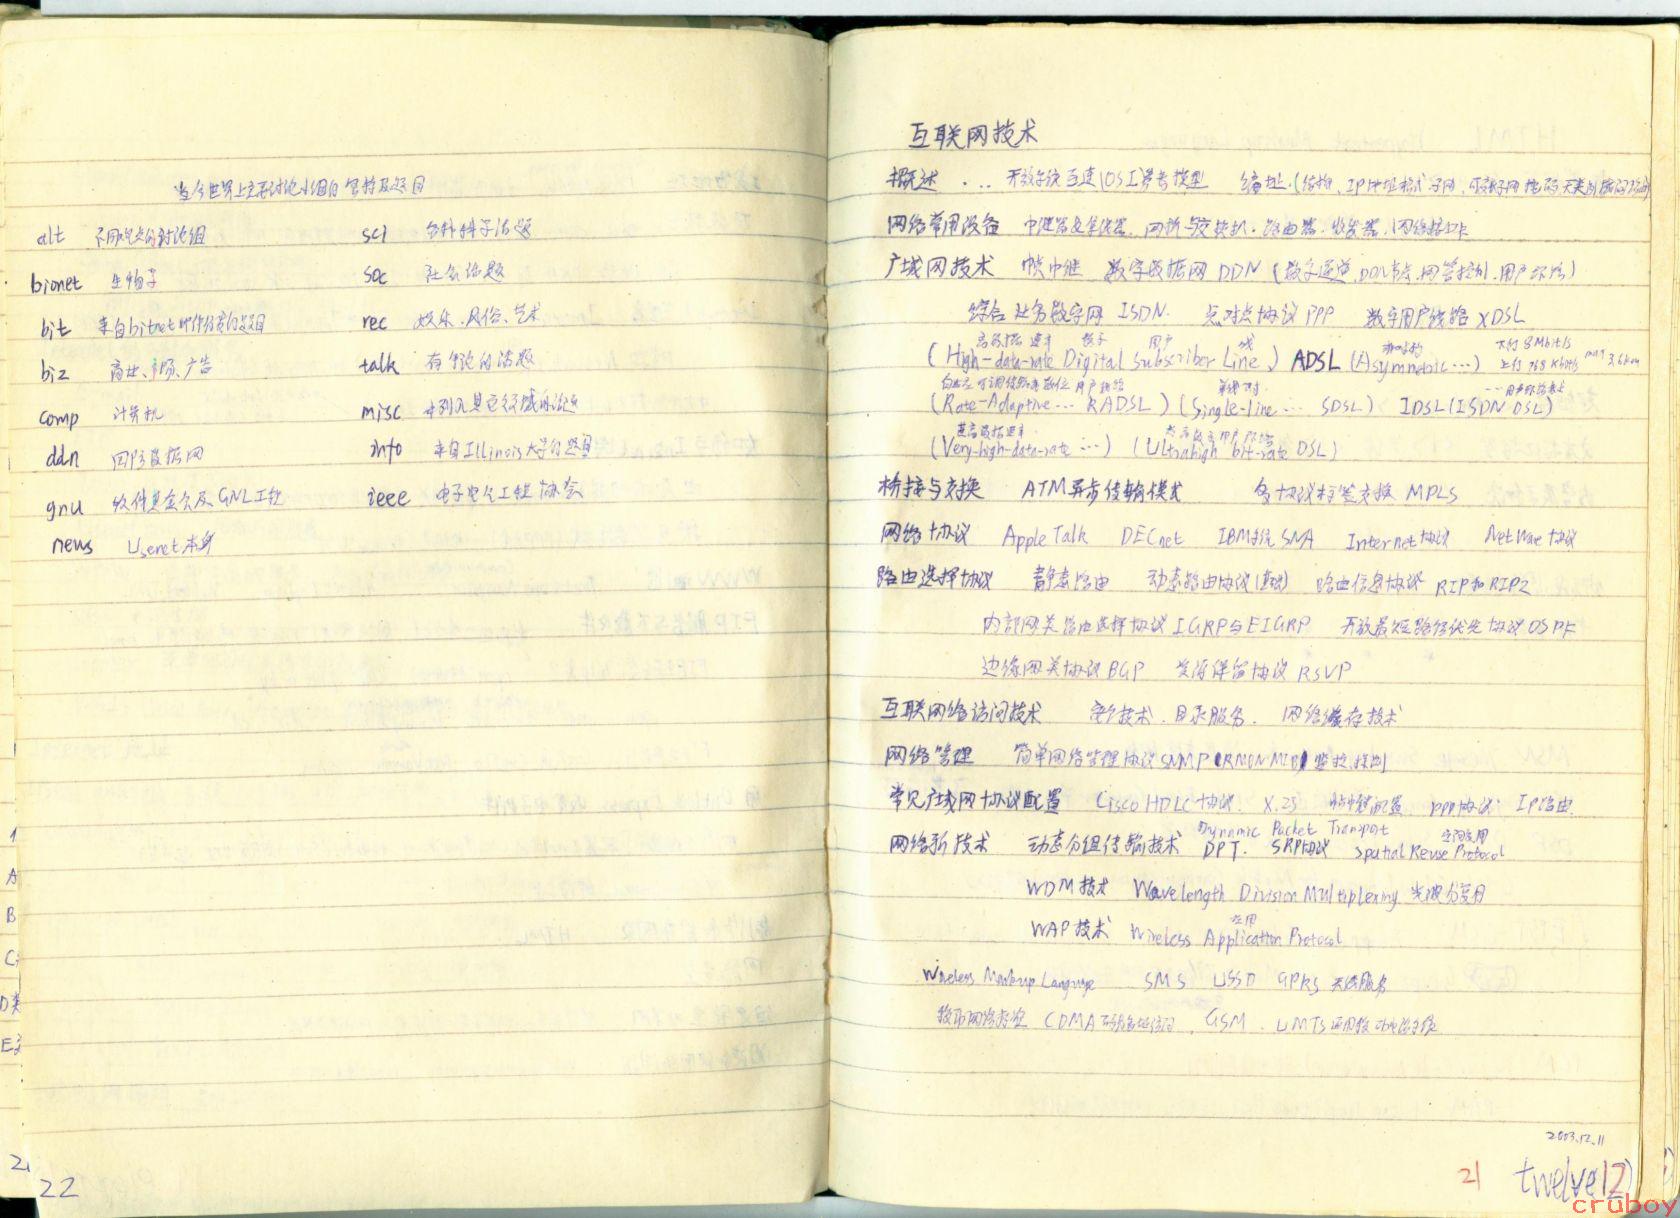 当今世界上主要讨论小组的名称及题目
alt 不同观点的讨论组 sci 各种科学话题
bionet 生物学 soc 社会话题
bit 来自bitnet邮件分发的题目 rec 娱乐、风俗、艺术
biz 商业、市场、广告 talk 有争论的话题
comp 计算机 misc 未列入其它领域的论题
ddn 国防数据网 info 来自Illinois大学的题目
gnu 软件基金会及GNU工程 ieee 电子电气工程协会
news Usenet本身
22
互联网技术
概述 ... 开放系统互连OSI参考模型 编址(结构、IP地址格式子网、可变子网掩码
网络常用设备 中继器及集线器、网桥与交换机、路由器、收发器、网络接口卡
广域网技术 帧中继 数字数据网DDN (数字通道、DDN节点、网管控制、用户环路)
综合业务数字网 ISDN. 点对点协议PPP 数字用户线路XDSL
高数据速率 数字 用户 线 非对称 下行8Mbit/s
(High-data-rate Digital Subscriber Line) ADSL (Asymmetric ...) 上行768Kbit/s max 3.6km
自适应 可调传输率数位用户线路 单线对
(Rate-Adaptive ... RADSL) (Single-line ... SDSL) IDSL(ISDN DSL)
甚高数据速率
(Very-high-data-rate ...) (Ultrahigh bit-rate DSL)
桥接与交换 ATM异步传输模式 多协议标签交换 MPLS
网络协议 AppleTalk DECnet IBM系统SNA Internet协议 NetWare协议
路由选择协议 静态路由 动态路由协议(基础) 路由信息协议 RIP和RIP2
内部网关路由选择协议IGRP与EIGRP 开放最短路径优先协议OSPF
边缘网关协议BGP 资源保留协议 RSVP
互联网络访问技术 安全技术、目录服务、网络缓存技术
网络管理 简单网络管理协议SNMP (RMON MIB) 监控、控制
常见广域网协议配置 Cisco HDLC协议. X.25 帧中继配置 PPP协议. IP路由.
Dynamic Packet Transport 空间复用
网络新技术 动态分组传输技术 DPT. SRP协议 Spatial Reuse Protocol
WDM技术 Wavelength Division Multiplexing 光波分复用
应用
WAP技术 Wireless Application Protocol
Wireless Markup Language SMS USSD GPRS 无线服务
CDMA 码分多址访问、GSM、UMTS 通用移动电话系统
2003.12.11
21 twelve 12
cruboy